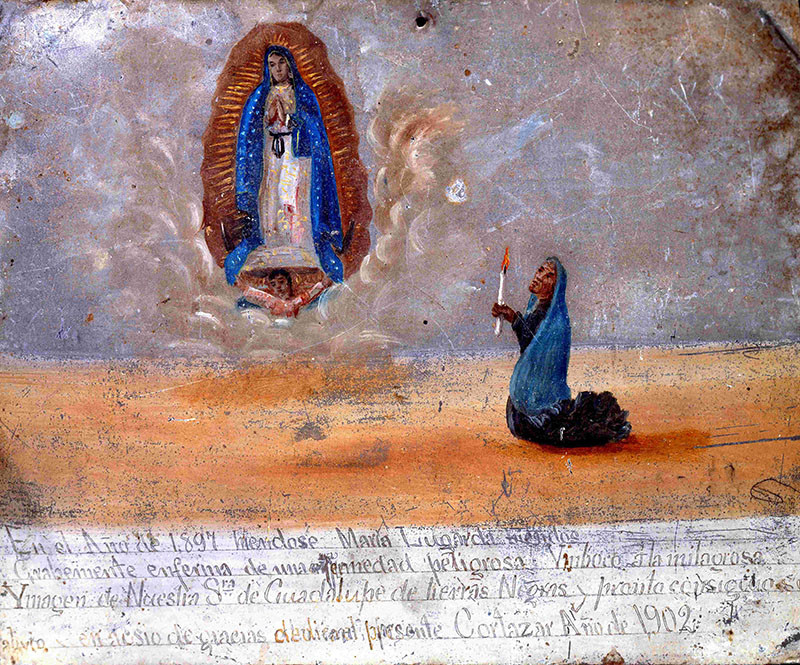 En el Año de 1897 hiendose María Lugarda
Grabemente enferma de una enfermedad peligrosa. Ynboco á la milagrosa
Ymagen de Nuestra Sra de Guadalupe de tierras Negras y pronto consiguio su
alivio y en acsio de gracias dedica el presente Cortazar Año de 1902